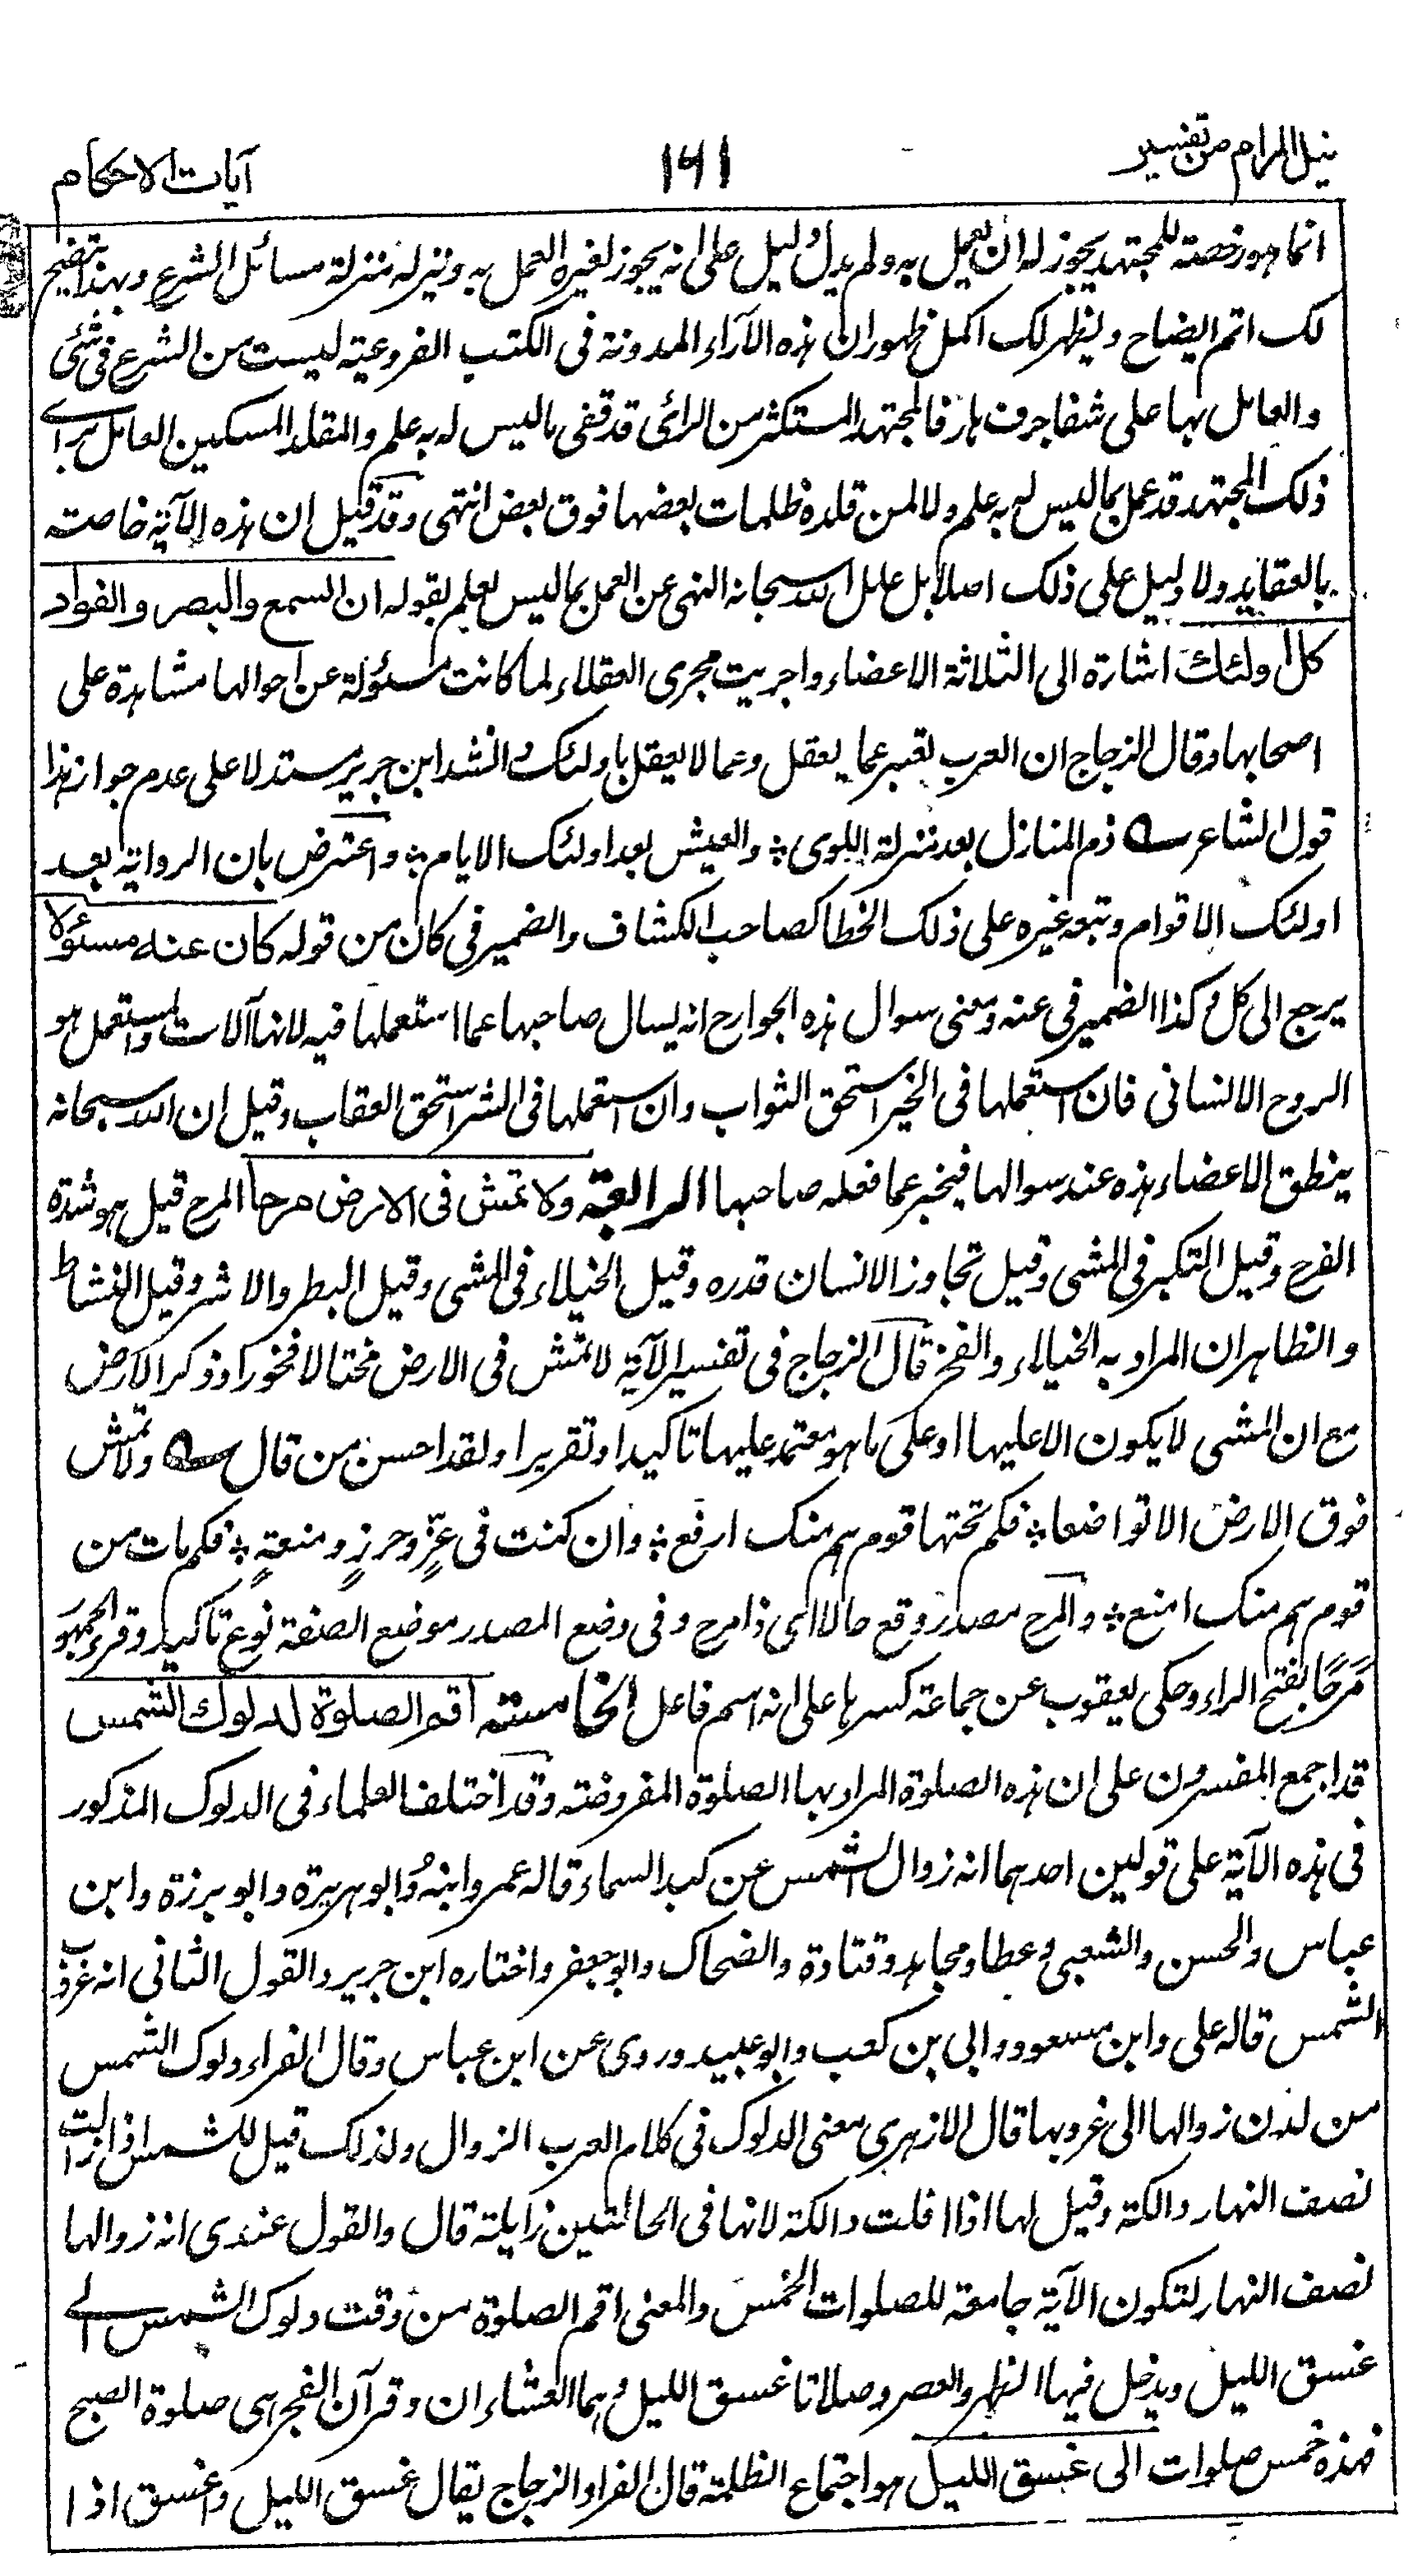 نيل المرام من تفسير
۱۶۱
آيات الاحكام
انما هو رخصة للمجتهد يجوز له ان يعمل به ولم يدل دليل على انه يجوز لغيره العمل به وتنزيله منزلة مسائل الشرع وبهذا يتضح
لك اتم ايضاح ويظهر لك اكمل ظهور ان هذه الآراء المدونة فى الكتب الفروعية ليست من الشرع فى شئ
والعامل بها على شفا جرف هار فالمجتهد المستكثر من الرائ قد قفى ماليس له به علم والمقلد المسكين العامل براى
ذلك المجتهد قد عمل بماليس له به علم ولا لمن قلده ظلمات بعضها فوق بعض انتهى وقد قيل ان هذه الآية خاصة
بالعقايد ولا دليل على ذلك اصلا بل علل الله سبحانه النهى عن العمل بماليس بعلم بقوله ان السمع والبصر والفواد
كل اولئك اشارة الى الثلاثة الاعضاء واجريت مجرى العقلاء لما كانت مسئولة عن احوالها مشاهدة على
اصحابها وقال الزجاج ان العرب تعبر عما يعقل وعما لا يعقل باولئك وانشد ابن جرير مستدلا على عدم جواز هذا
قول الشاعر ذم المنازل بعد منزلة اللوى ؛ والعيش بعد اولئك الايام ؛ واعترض بان الرواية بعد
اولئك الاقوام وتبعه غيره على ذلك الخطا كصاحب الكشاف والضمير فى كان من قوله كان عنه مسئولا
يرجع الى كل وكذا الضمير فى عنه ومعنى سوال هذه الجوارح انه يسال صاحبها عما استعملها فيه لانها آلات والمستعمل هو
الروح الانسانى فان استعملها فى الخير استحق الثواب وان استعملها فى الشر استحق العقاب وقيل ان الله سبحانه
ينطق الاعضاء هذه عند سوالها فيخبر عما فعله صاحبها الرابعة ولا تمش فى الارض مرحا المرح قيل هو شدة
الفرح وقيل التكبر فى المشى وقيل تجاوز الانسان قدره وقيل الخيلاء فى المشى وقيل البطر والاشر وقيل النشاط
والظاهر ان المراد به الخيلاء والفخر قال الزجاج فى تفسير الآية لا تمش فى الارض مختالا فخورا وذكر الارض
مع ان المشى لا يكون الا عليها او على ما هو معتمد عليها تاكيدا وتقريرا ولقد احسن من قال ولا تمش
فوق الارض الا تواضعا ؛ فكم تحتها قوم هم منك ارفع ؛ وان كنت فى عزٍّ وحرزٍ ومنعةٍ ؛ فكم مات من
قوم هم منك امنع ؛ والمرح مصدر وقع حالا اى ذا مرح وفى وضع المصدر موضع الصفة نوع تاكيد وقرء الجمهور
مَرَحًا بفتح الراء وحكى يعقوب عن جماعة كسرها على انه اسم فاعل الخامسة اقم الصلوة لدلوك الشمس
قد اجمع المفسرون على ان هذه الصلوة المراد بها الصلوة المفروضة وقد اختلف العلماء فى الدلوك المذكور
فى هذه الآية على قولين احدهما انه زوال الشمس عن كبد السماء قاله عمر وابنهُ وابو هريرة وابو برزة وابن
عباس والحسن والشعبى وعطا ومجاهد وقتادة والضحاك وابو جعفر واختاره ابن جرير والقول الثانى انه غروب
الشمس قاله على وابن مسعود وابى بن كعب وابو عبيد وروى عن ابن عباس وقال الفراء دلوك الشمس
من لدن زوالها الى غروبها قال الازهرى معنى الدلوك فى كلام العرب الزوال ولذلك قيل للشمس اذا زالت
نصف النهار دالكة وقيل لها اذا افلت دالكة لانها فى الحالتين زايلة قال والقول عندى انه زوالها
نصف النهار لتكون الآية جامعة للصلوات الخمس والمعنى اقم الصلوة من وقت دلوك الشمس الى
غسق الليل ويدخل فيها الظهر والعصر وصلاتا غسق الليل وهما العشاءان وقرآن الفجر هى صلوة الصبح
فهذه خمس صلوات الى غسق الليل هو اجتماع الظلمة قال الفراء والزجاج يقال غسق الليل واغسق اذا